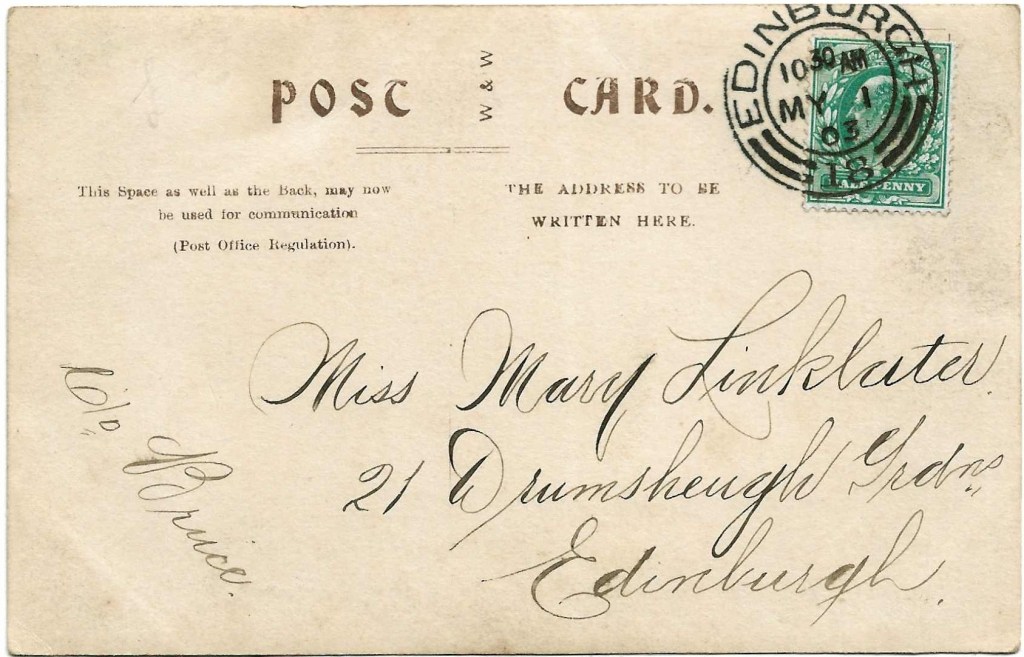 POST CARD.
W & W
EDINBURGH
10 30 AM
MY 1
03
18
HALFPENNY
This Space as well as the Back, may now
be used for communication
(Post Office Regulation).
THE ADDRESS TO BE
WRITTEN HERE.
Miss Mary Linklater
21 Drumsheugh Grdns
Edinburgh.
c/o Bruce.